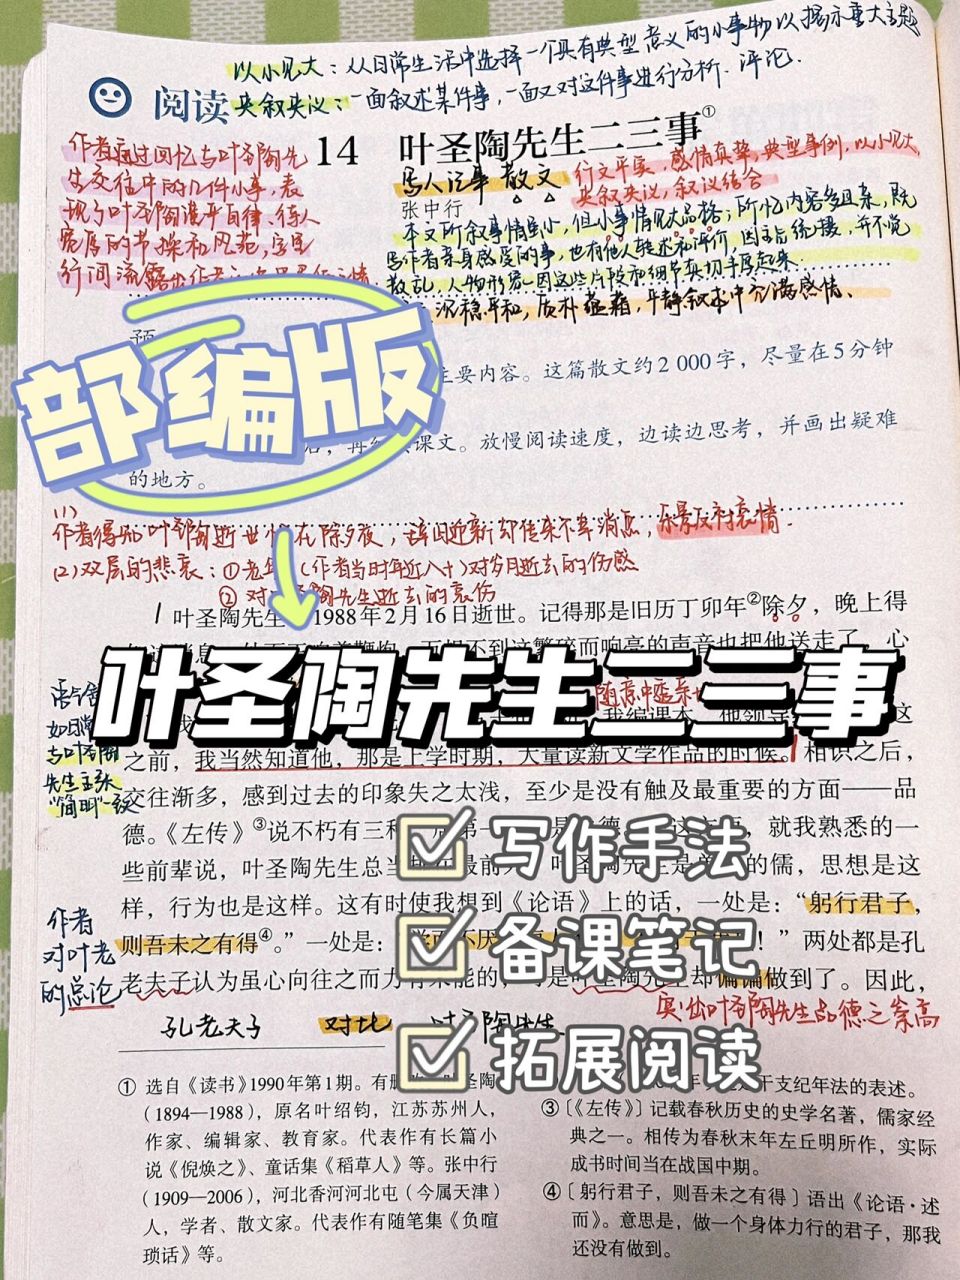 以小见大：从日常生活中选择一个具有典型意义的小事物以揭示重大主题
阅读
夹叙夹议：一面叙述某件事，一面又对这件事进行分析、评论.
14 叶圣陶先生二三事①
作者通过回忆与叶圣陶先
生交往中的几件小事，表
现了叶圣陶
严于
自律、待人
宽厚的节操和风范，字里
行间流露出作者
写人记事 散文
行文平实，感情真挚，典型事例，以小见大，
夹叙夹议，叙议结合
张中行
本文所叙事情虽小，但小事情见大品格，所忆内容多且杂，既
写作者亲身感受的事，也有他人转述和评价，因主旨统摄，并不觉
散乱，人物形象
因这些片段和细节真切丰厚起来.
沉稳平和，质朴蕴藉，平静叙述中充满感情、
预
主要内容。这篇散文约2 000字，尽量在5分钟
课文。放慢阅读速度，边读边思考，并画出疑难
的地方。
部编版
(1)
作者得知叶圣陶逝世
在除夕夜，辞旧迎新却传来不幸消息，乐景反衬哀情.
(2)双层的悲哀：①老年
(作者当时年近八十)对岁月逝去的伤感
②对
陶先生逝去的哀伤
1 叶圣陶先生
1988年2月16日逝世。记得那是旧历丁卯年②除夕，晚上得
不到这繁碎而响亮的声音也把他送走了。心
叶圣陶先生二三事
我编课本，他领导
这
之前，我当然知道他，那是上学时期，大量读新文学作品的时候。相识之后，
如日常
与叶圣陶
先生主张
“简明”一致
交往渐多，感到过去的印象失之太浅，至少是没有触及最重要的方面——品
德。《左传》③说不朽有三种
就我熟悉的一
写作手法
些前辈说，叶圣陶先生总
最前
叶圣陶先生是
的儒，思想是这
样，行为也是这样。这有时使我想到《论语》上的话，一处是：“躬行君子，
作者
对叶老
的总论
则吾未之有得④。”一处是：
！”两处都是孔
备课笔记
老夫子认为虽心向往之而力有未能的，可是叶圣陶先生却偏偏做到了。因此，
突出叶圣陶先生品德之崇高
孔老夫子 对比 叶圣陶先生
拓展阅读
① 选自《读书》1990年第1期。有删
叶圣陶
（1894—1988），原名叶绍钧，江苏苏州人，
作家、编辑家、教育家。代表作有长篇小
说《倪焕之》、童话集《稻草人》等。张中行
（1909—2006），河北香河河北屯（今属天津）
人，学者、散文家。代表作有随笔集《负暄
琐话》等。
干支纪年法的表述。
③〔《左传》〕记载春秋历史的史学名著，儒家经
典之一。相传为春秋末年左丘明所作，实际
成书时间当在战国中期。
④〔躬行君子，则吾未之有得〕语出《论语·述
而》。意思是，做一个身体力行的君子，那我
还没有做到。